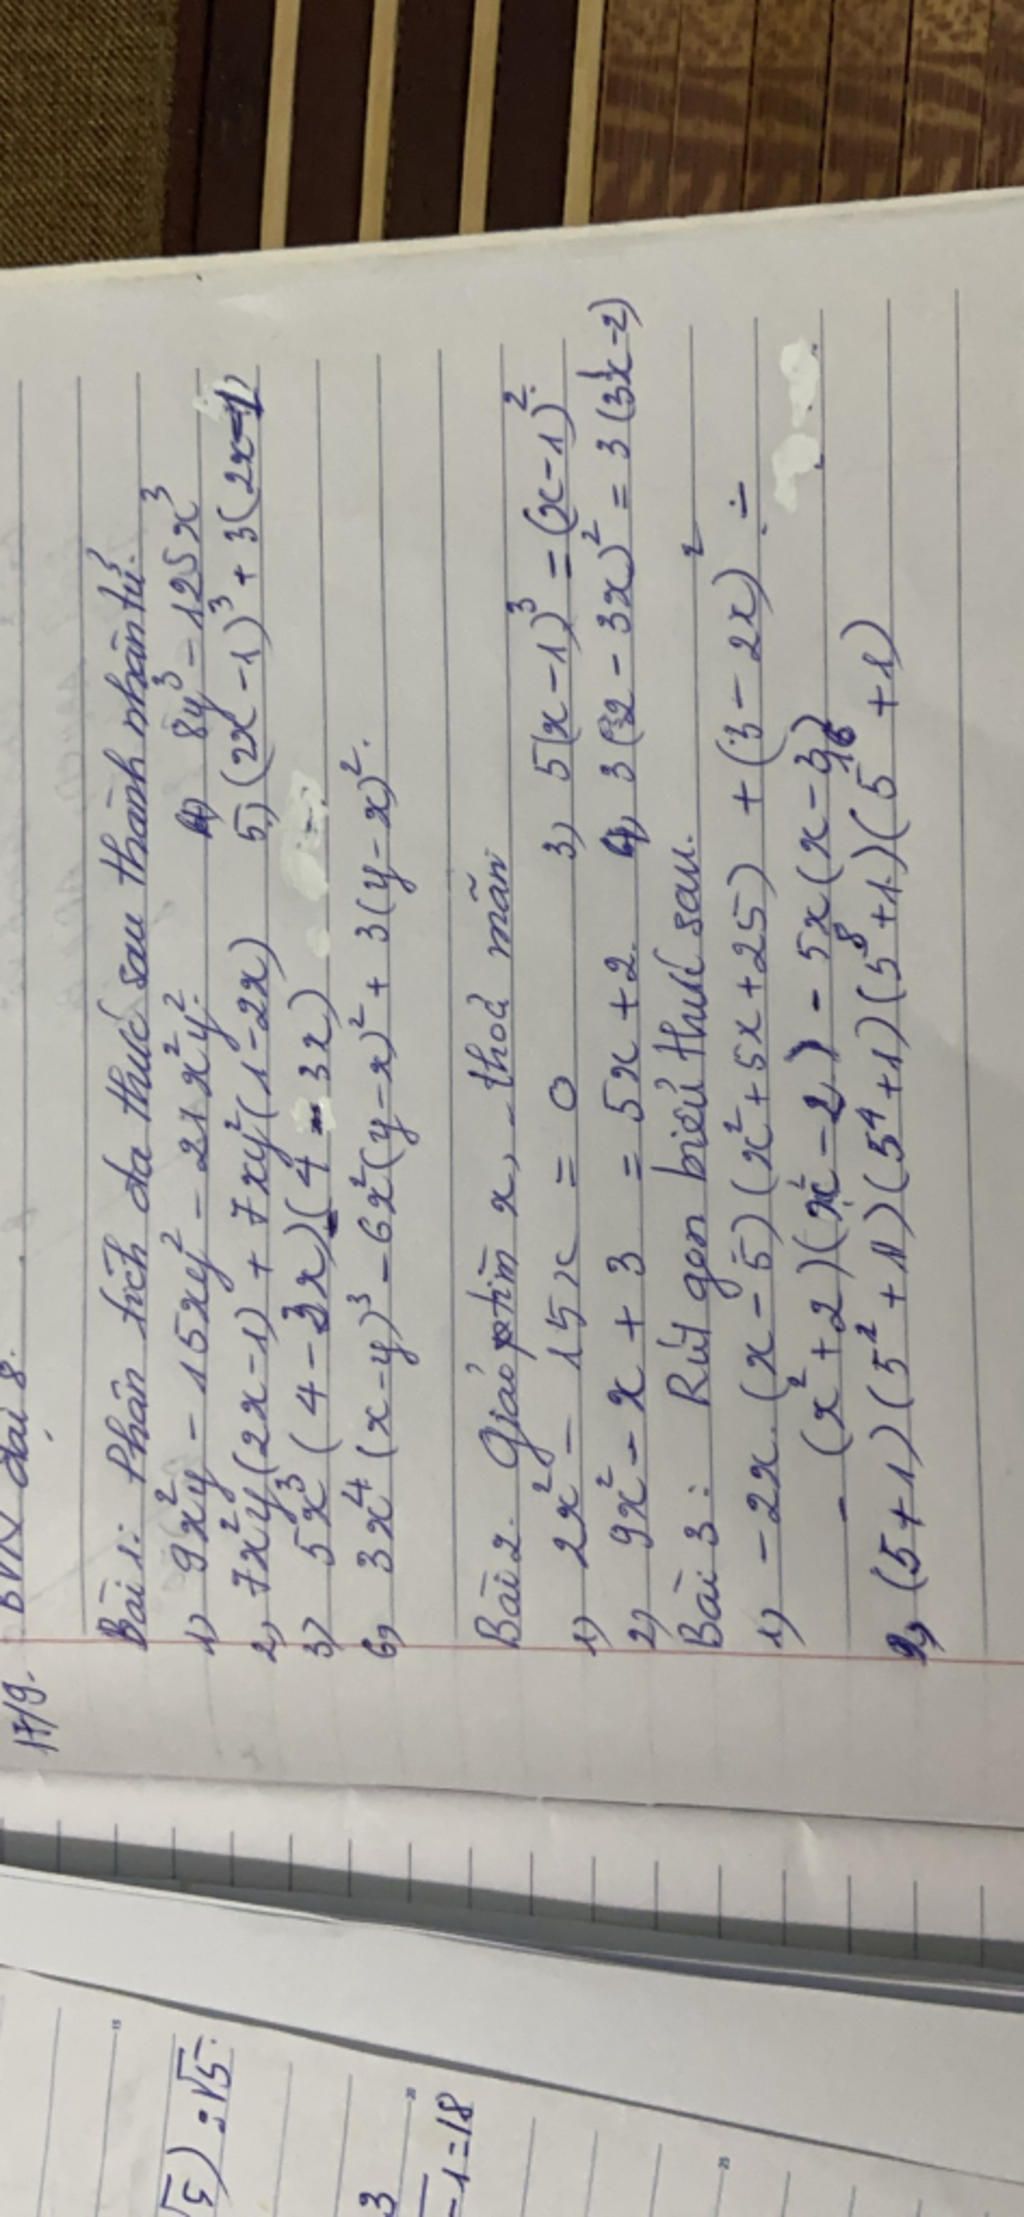 17/9. BVN đại 8.
Bài 1: Phân tích đa thức sau thành nhân tử.
1) 9x²y - 15xy² - 21x²y². 4) 8y³ - 125x³
2) 7x²y(2x-1) + 7xy²(1-2x) 5) (2x-1)³ + 3(2x-1)
3) 5x³(4-3x)(4-3x)
6) 3x⁴(x-y)³ - 6x²(y-x)² + 3(y-x)².
Bài 2. Giải tìm x, thoả mãn
1) 2x² - 15x = 0 3) 5(x-1)³ = (x-1)².
2) 9x² - x + 3 = 5x + 2. 4) 3(2-3x)² = 3(3x-2)
Bài 3: Rút gọn biểu thức sau.
1) -2x.(x-5)(x²+5x+25) + (3-2x)² ÷
- (x²+2)(x²-2) - 5x(x-3)
2) (5+1)(5²+1)(5⁴+1)(5⁸+1)(5¹⁶+1)
√5) : √5.
3
-1 = 18